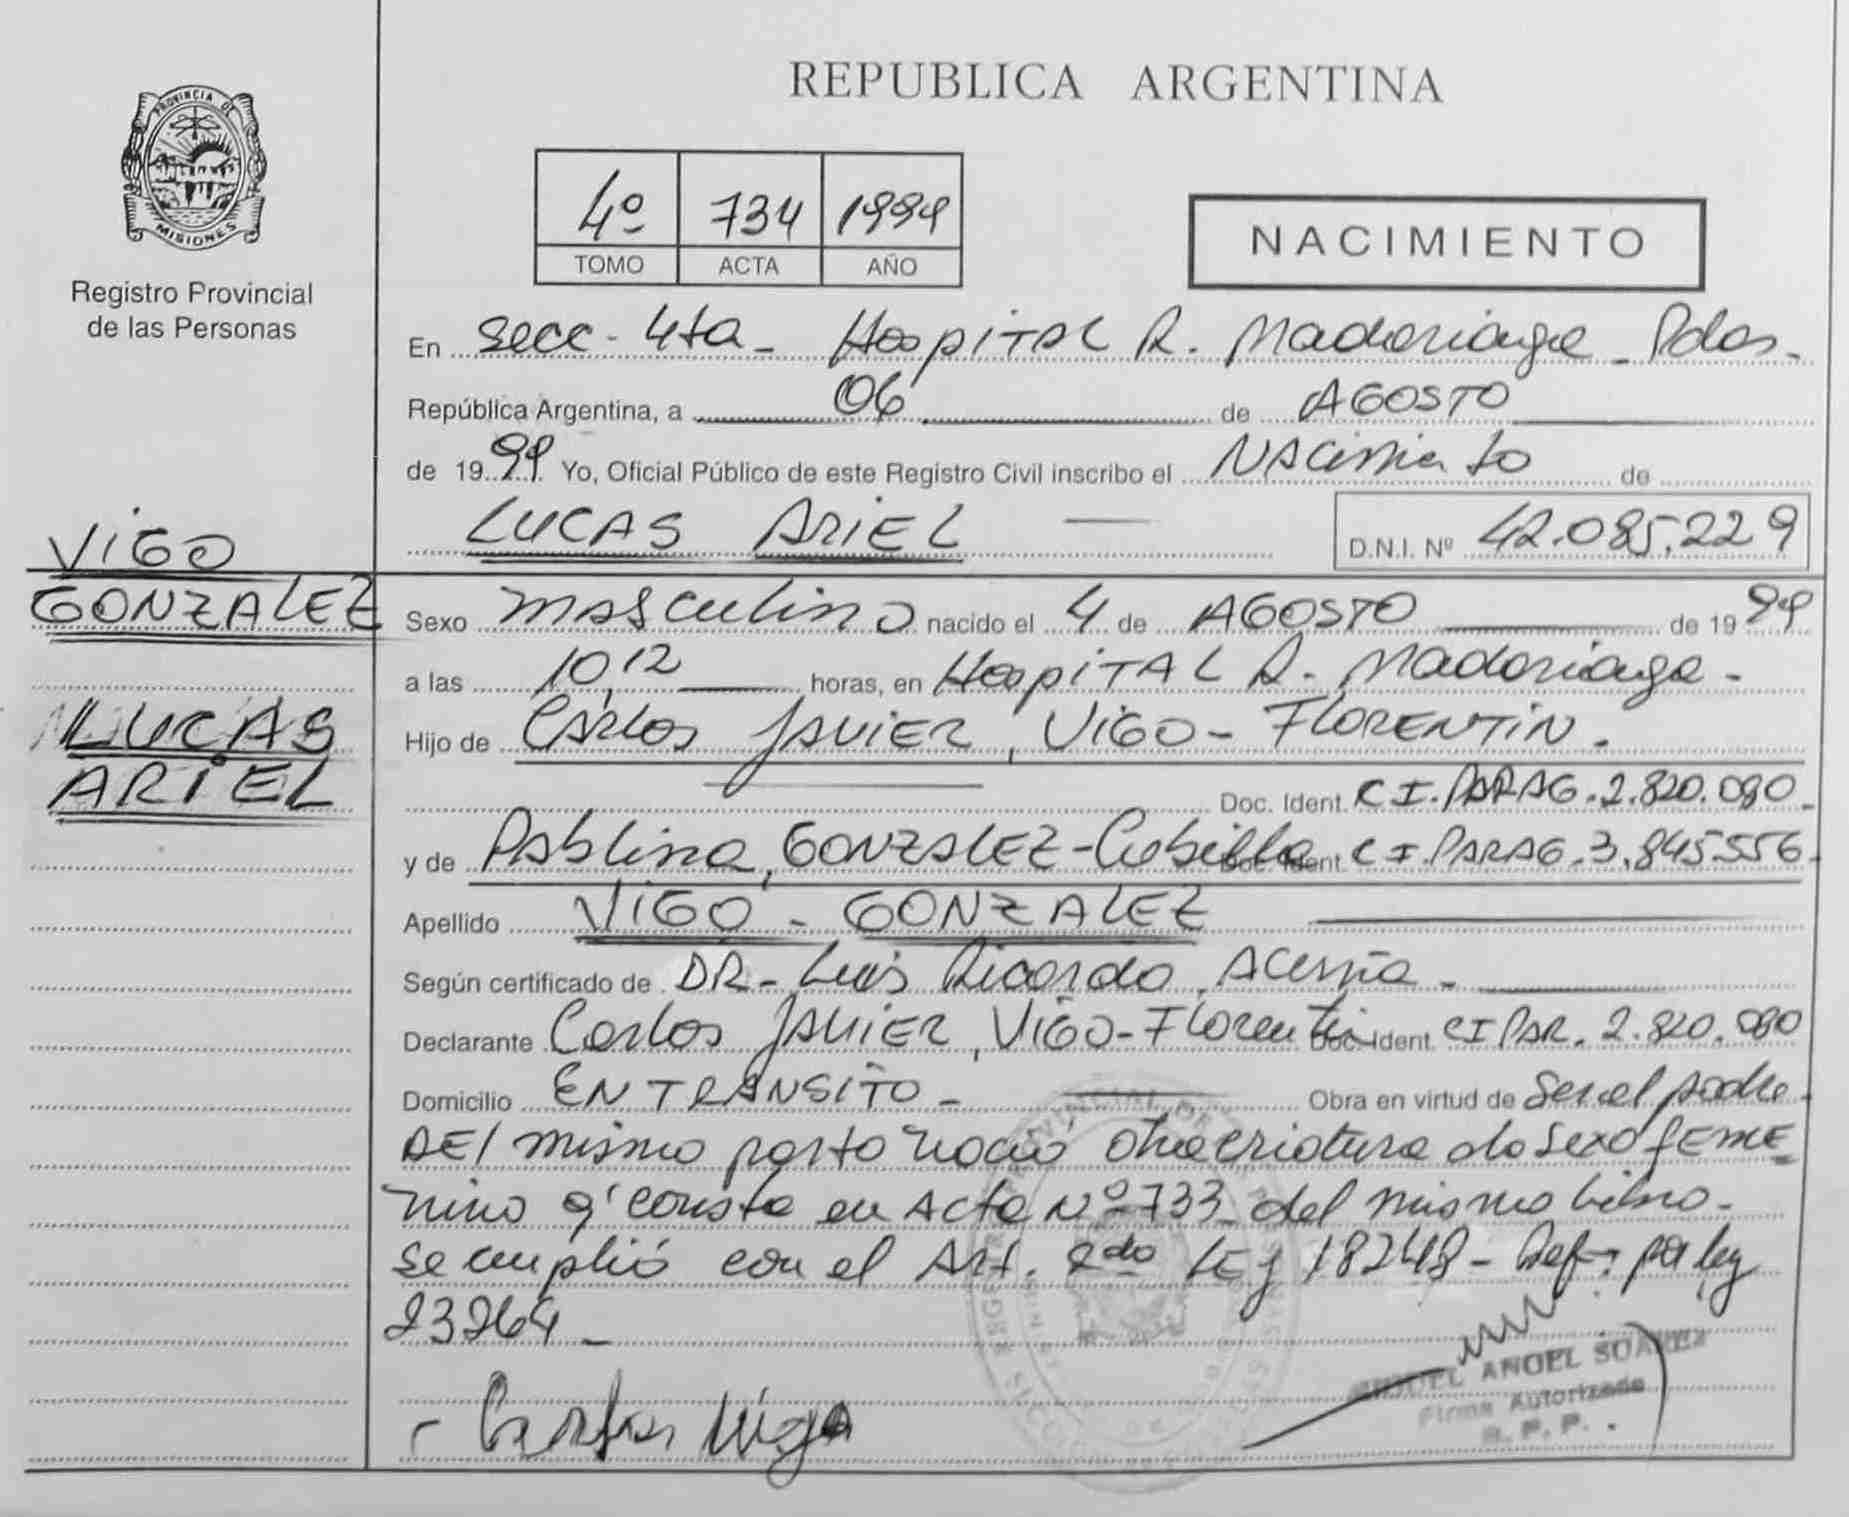 REPUBLICA ARGENTINA
PROVINCIA DE
MISIONES
Registro Provincial
de las Personas
4º 734 1999
TOMO ACTA AÑO
NACIMIENTO
En Secc - 4ta - Hospital R. Madariaga - Pdas.
República Argentina, a 06 de AGOSTO
de 1999 Yo, Oficial Público de este Registro Civil inscribo el Nacimiento de
LUCAS ARIEL D.N.I. Nº 42.085.229
VIGO
GONZALEZ
LUCAS
ARIEL
Sexo masculino nacido el 4 de AGOSTO de 1999
a las 10,12 horas, en Hospital R. Madariaga -
Hijo de Carlos Javier, VIGO - FLORENTIN.
Doc. Ident. C I. PARAG. 2.820.080.
y de Pablina, GONZALEZ - Cubilla Doc. Ident. C I. PARAG. 3.845556.
Apellido VIGO - GONZALEZ
Según certificado de DR - Luis Ricardo, Acuña -
Declarante Carlos Javier, VIGO - Florentin Doc. Ident. C I PAR. 2.820.080
Domicilio EN TRANSITO - Obra en virtud de Ser el padre.
DEl mismo parto nació otra criatura do sexo feme
nino q' consta en Acta Nº 733 del mismo libro -
Se cumplió con el Art. 2do LEy 18248 - por ley
23264 -
Carlos Vigo
MIGUEL ANGEL SUAREZ
Firma Autorizada
R. P. P.